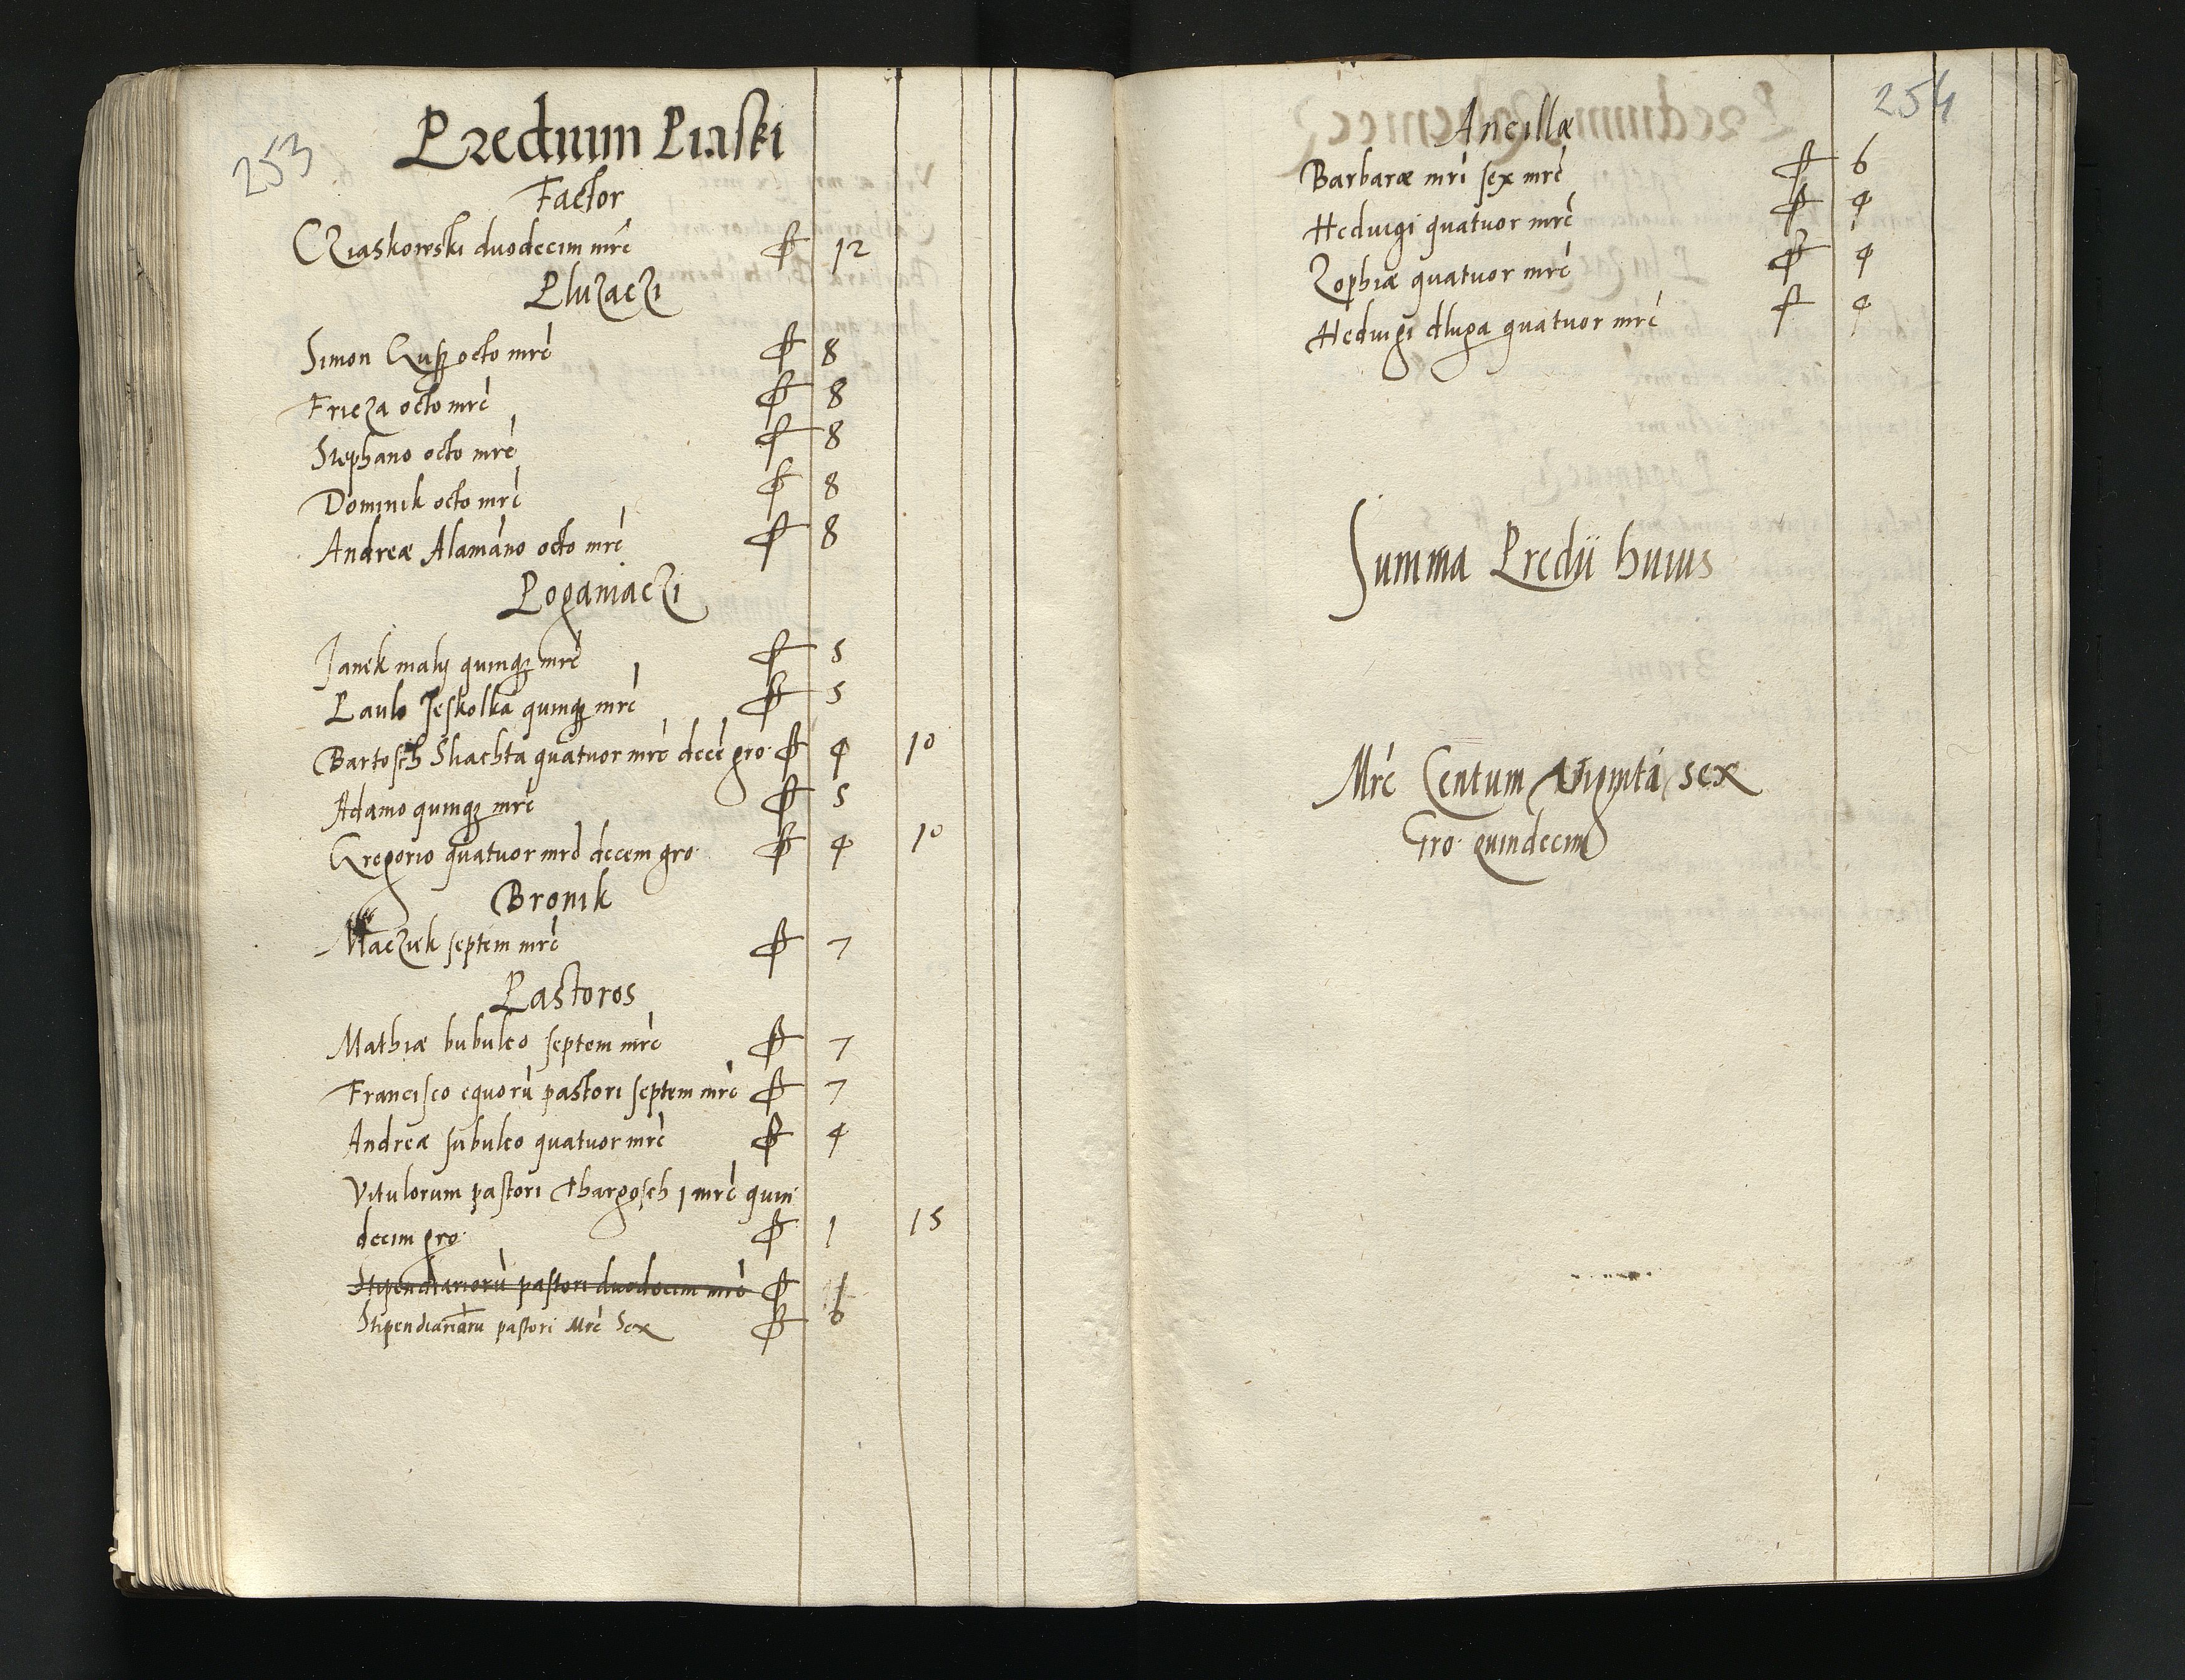 253
Predium Piaski
Factor
CZiaskowski duodecim mrć 12
PluZacZi
Simon octo mrć 8
FrieZa octo mrć 8
Stephano octo mrć 8
Dominik octo mrć 8
Andreæ Alamano octo mrć 8
PoganiacZi
Janek maly quinqz mrć 5
Paulo Jeskolka quinqz mrć 5
Bartosch Slachta quatuor mrć decē gro. 4 10
Adamo quinqz mrć 5
Gregorio quatuor mrć decem gro. 4 10
Bronik
MacZiek septem mrć 7
Pastores
Mathiæ bubulco septem mrć 7
Francisco equorū pastori septem mrć 7
Andreæ subulco quatuor mrć 4
Vitulorum pastori Thargosch 1 mrć quin
decim gro. 1 15
Stipendiariorū pastori duodecim mrć
Stipendiariarū pastori Mrć Sex 6
254
Ancillæ
Barbaræ mri sex mrć 6
Hedvigi quatuor mrć 4
Zophiæ quatuor mrć 4
Hedvigi dluga quatuor mrć 4
Summa Predii huius
Mrć Centum viginti sex
Gro. quindecim